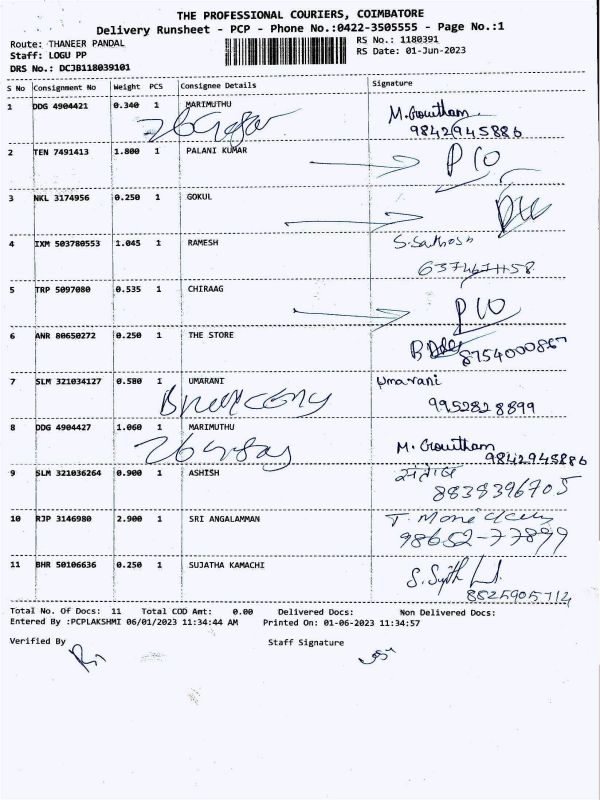 THE PROFESSIONAL COURIERS, COIMBATORE
Delivery Runsheet - PCP - Phone No.:0422-3505555 - Page No.:1
Route: THANEER PANDAL
RS No.: 1180391
Staff: LOGU PP
RS Date: 01-Jun-2023
DRS No.: DCJB118039101
S No Consignment No Weight PCS Consignee Details Signature
1 DDG 4904421 0.340 1 MARIMUTHU M. Gowtham
9842945886
2 TEN 7491413 1.800 1 PALANI KUMAR
3 NKL 3174956 0.250 1 GOKUL
4 IXM 503780553 1.045 1 RAMESH S. Sathosh
5 TRP 5097080 0.535 1 CHIRAAG
6 ANR 80650272 0.250 1 THE STORE
7 SLM 321034127 0.580 1 UMARANI Umarani
9952828899
8 DDG 4904427 1.060 1 MARIMUTHU
M. Gowtham
9842945886
9 SLM 321036264 0.900 1 ASHISH
8838396705
10 RJP 3146980 2.900 1 SRI ANGALAMMAN
98652-77899
11 BHR 50106636 0.250 1 SUJATHA KAMACHI
8825905714
Total No. Of Docs: 11 Total COD Amt: 0.00 Delivered Docs: Non Delivered Docs:
Entered By :PCPLAKSHMI 06/01/2023 11:34:44 AM Printed On: 01-06-2023 11:34:57
Verified By Staff Signature